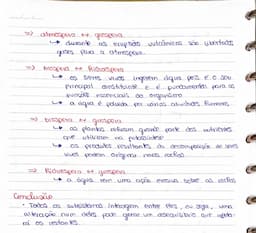 => atmosfera ↔ geosfera
↳ durante as erupções vulcânicas são libertados
gases para a atmosfera.
=> biosfera ↔ hidrosfera
↳ os seres vivos ingerem água pois é o seu
principal constituinte e é fundamental para as
funções essenciais do organismo
↳ a água é poluída por várias atividades humanas
=> biosfera ↔ geosfera
↳ as plantas retiram grande parte dos nutrientes
que utilizam na fotossíntese
↳ os produtos resultantes da decomposição de seres
vivos podem originar novas rochas
=> Hidrosfera ↔ geosfera
↳ a água tem uma ação erosiva sobre as rochas
Conclusão
• Todos os subsistemas interagem entre eles, ou seja, uma
alteração num deles pode gerar um desequilíbrio que afeta-
rá os restantes.